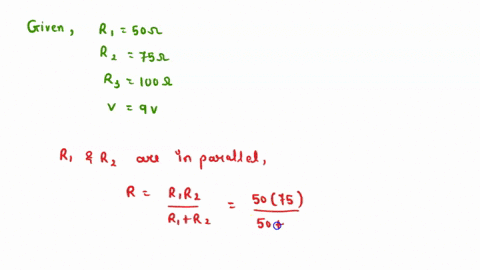 Given, R₁ = 50Ω
R₂ = 75Ω
R₃ = 100Ω
V = 9V
R₁ & R₂ are in parallel,
R = R₁R₂ / R₁+R₂ = 50(75) / 50